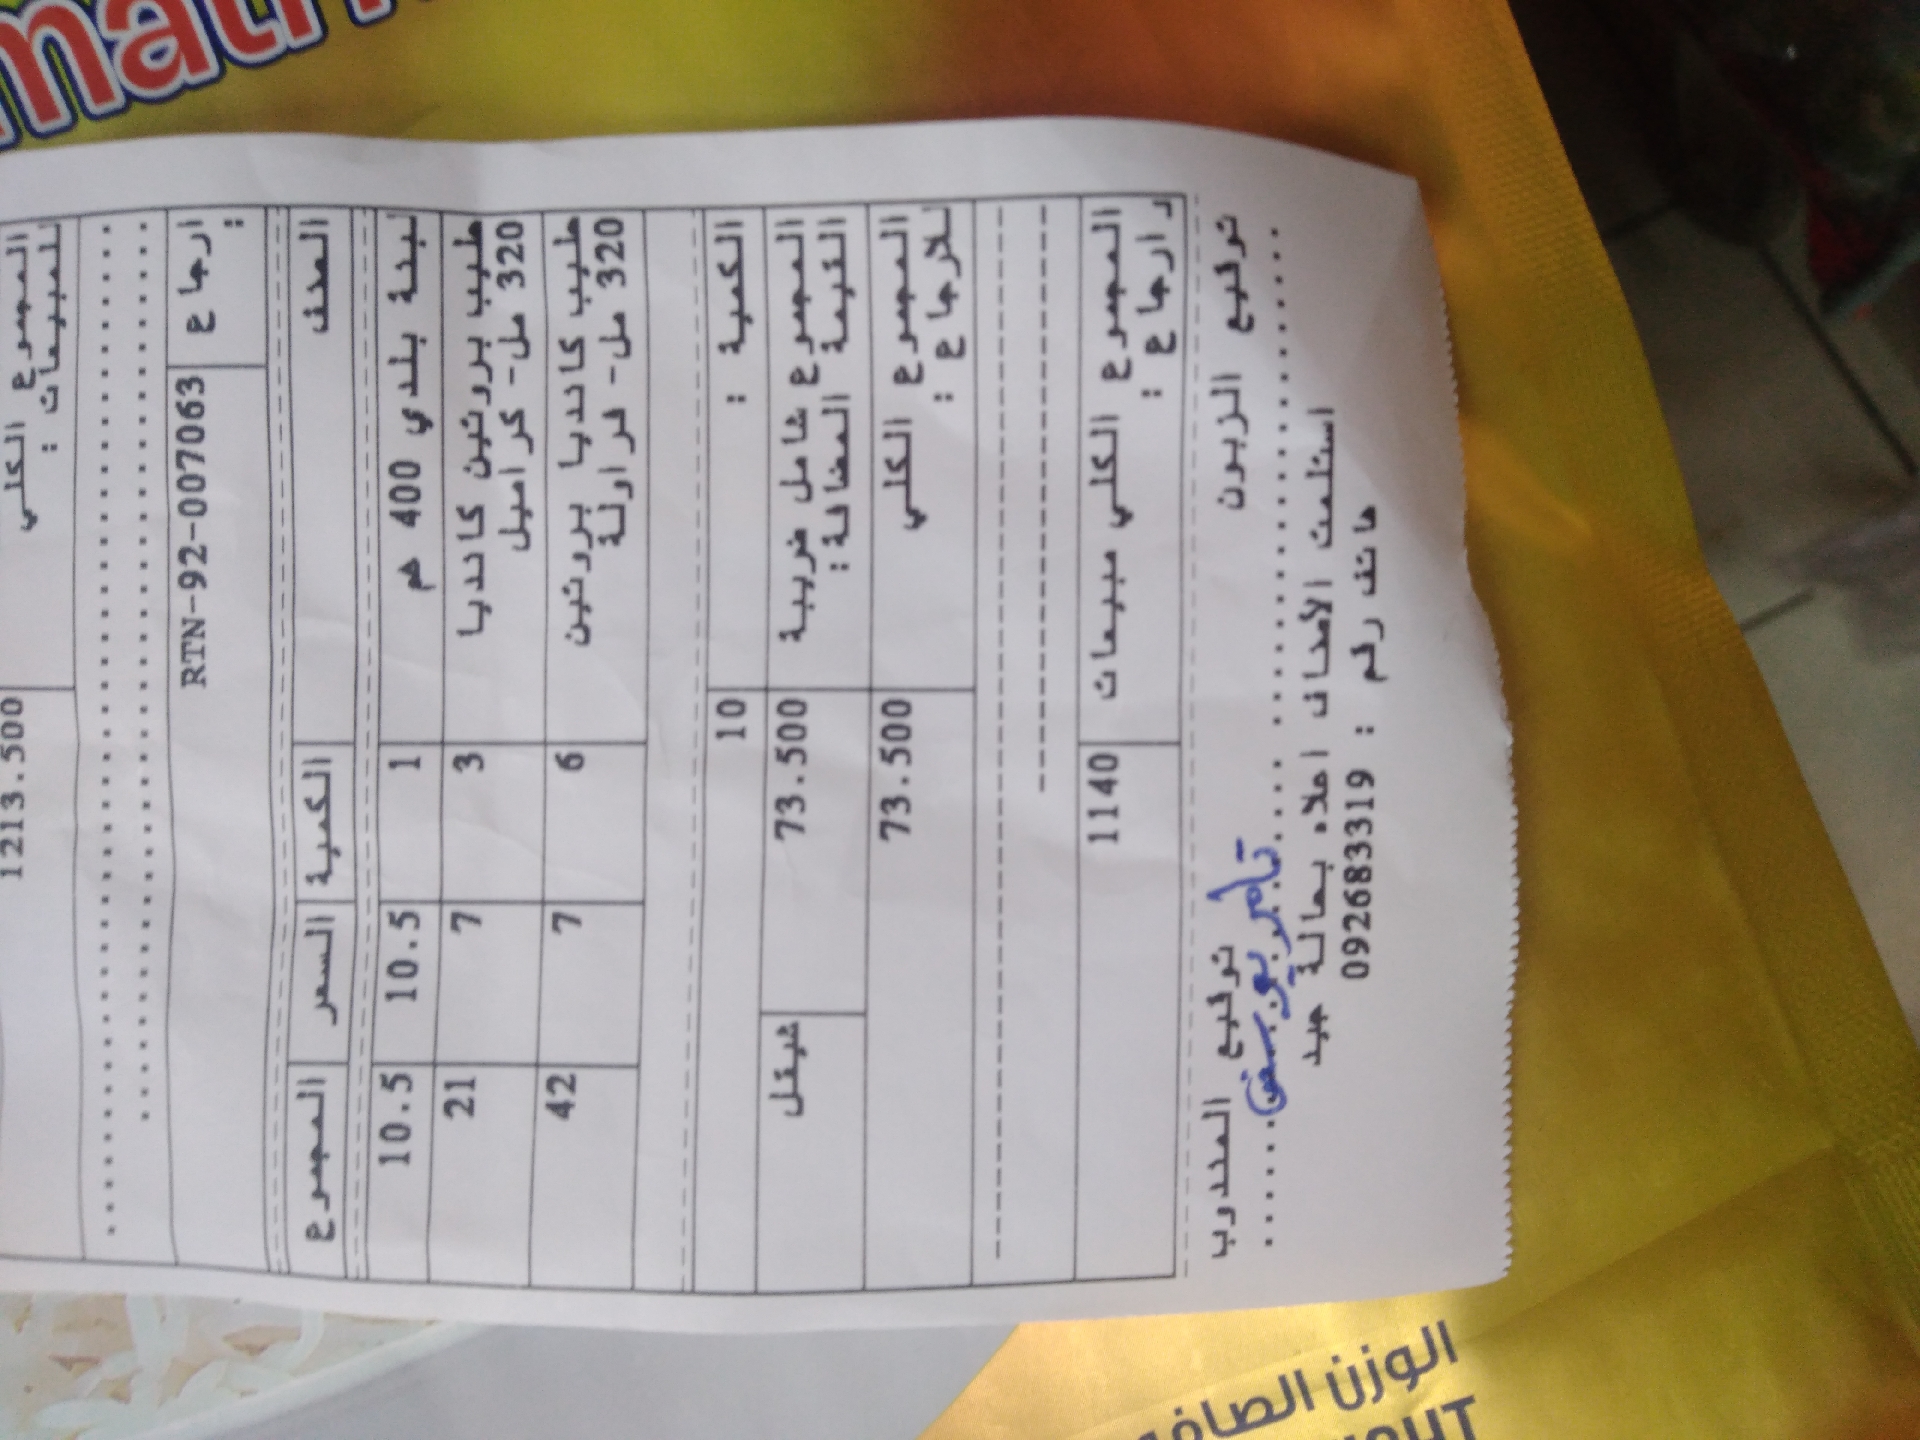 المجموع الكلي 1213.500
للمبيعات :
ارجاع RTN-92-007063
:
الصنف الكمية السعر المجموع
لبنة بلدي 400 1 10.5 10.5
حليب بروتين كانديا 3 7 21
320 مل- كراميل
حليب كانديا بروتين 6 7 42
320 مل- فراولة
الكمية : 10
المجموع شامل ضريبة 73.500 شيقل
القيمة المضافة :
المجموع الكلي 73.500
للارجاع :
المجموع الكلي مبيعات 1140
و ارجاع :
توقيع الزبون توقيع المندوب
تامر يوسف
استلمت الأصناف اعلاه بحالة جيد
هاتف رقم : 092683319
الوزن الصافي